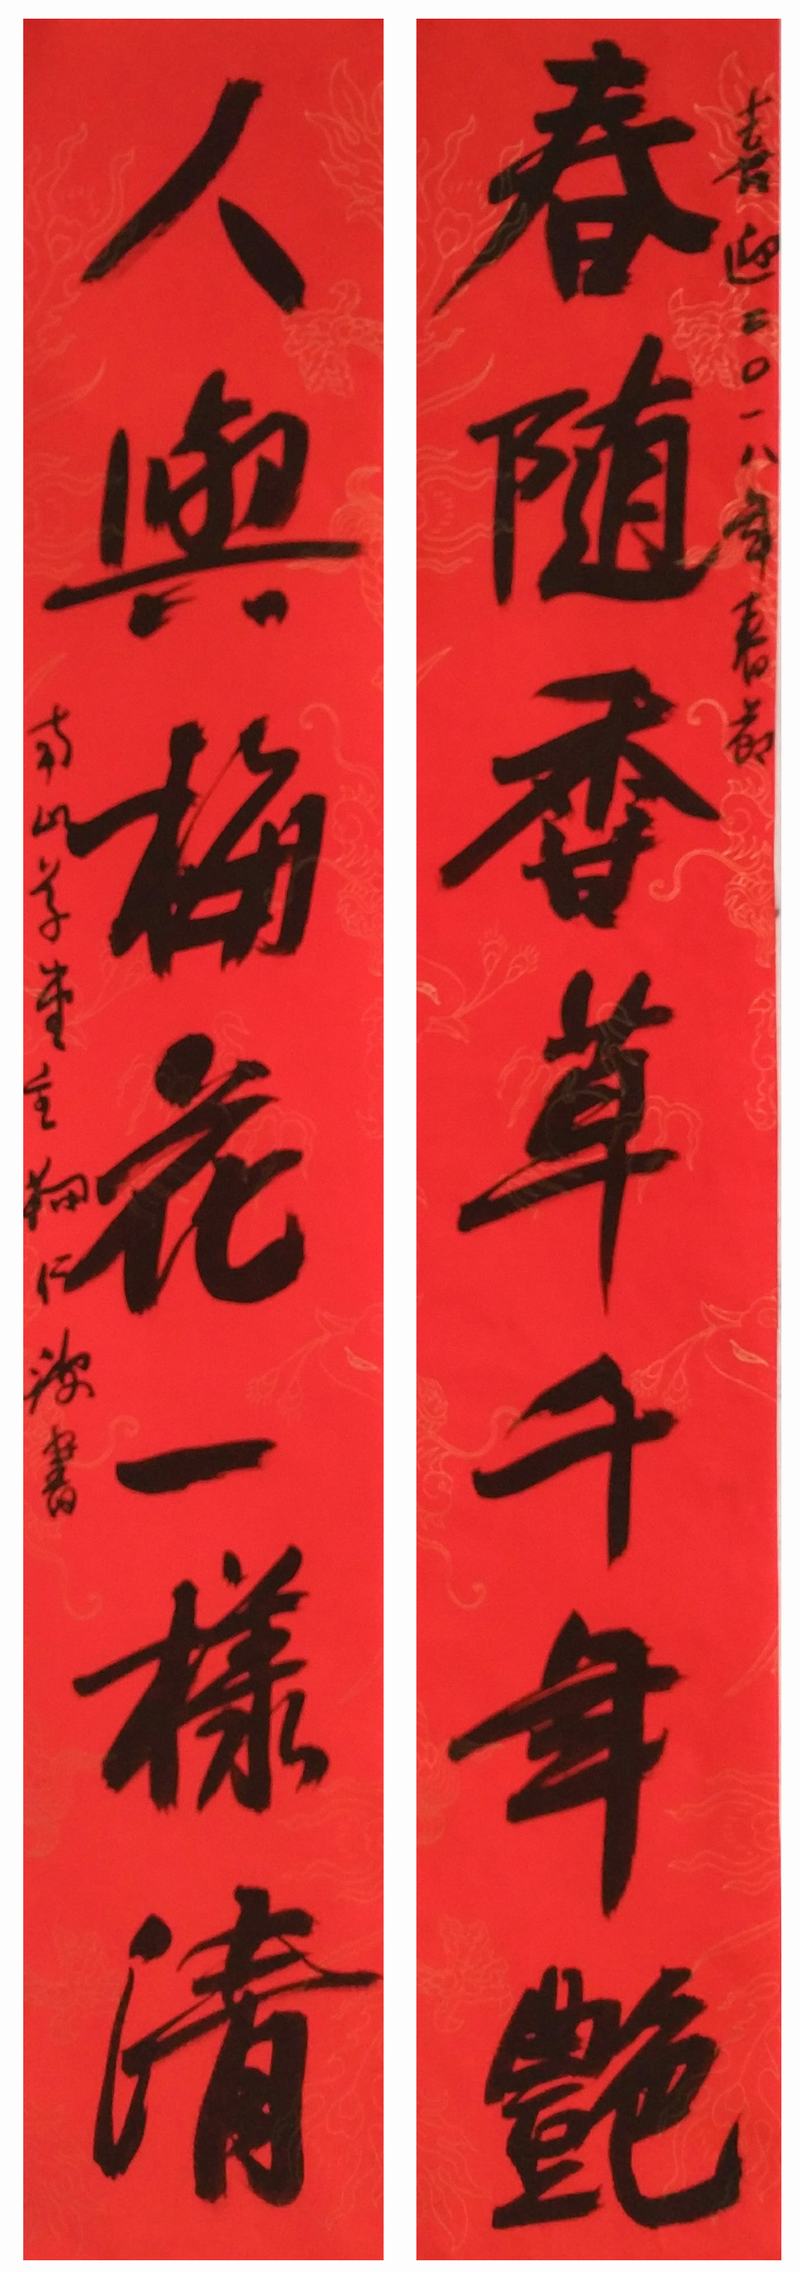 喜迎二0一八年春节
春随香草千年艷
人與梅花一樣清
南山草堂主
仁
書